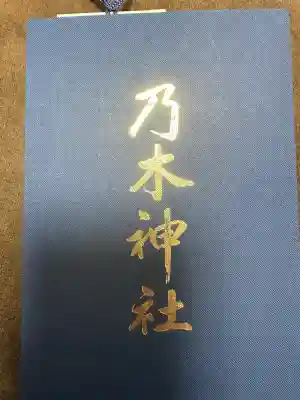 乃木神社